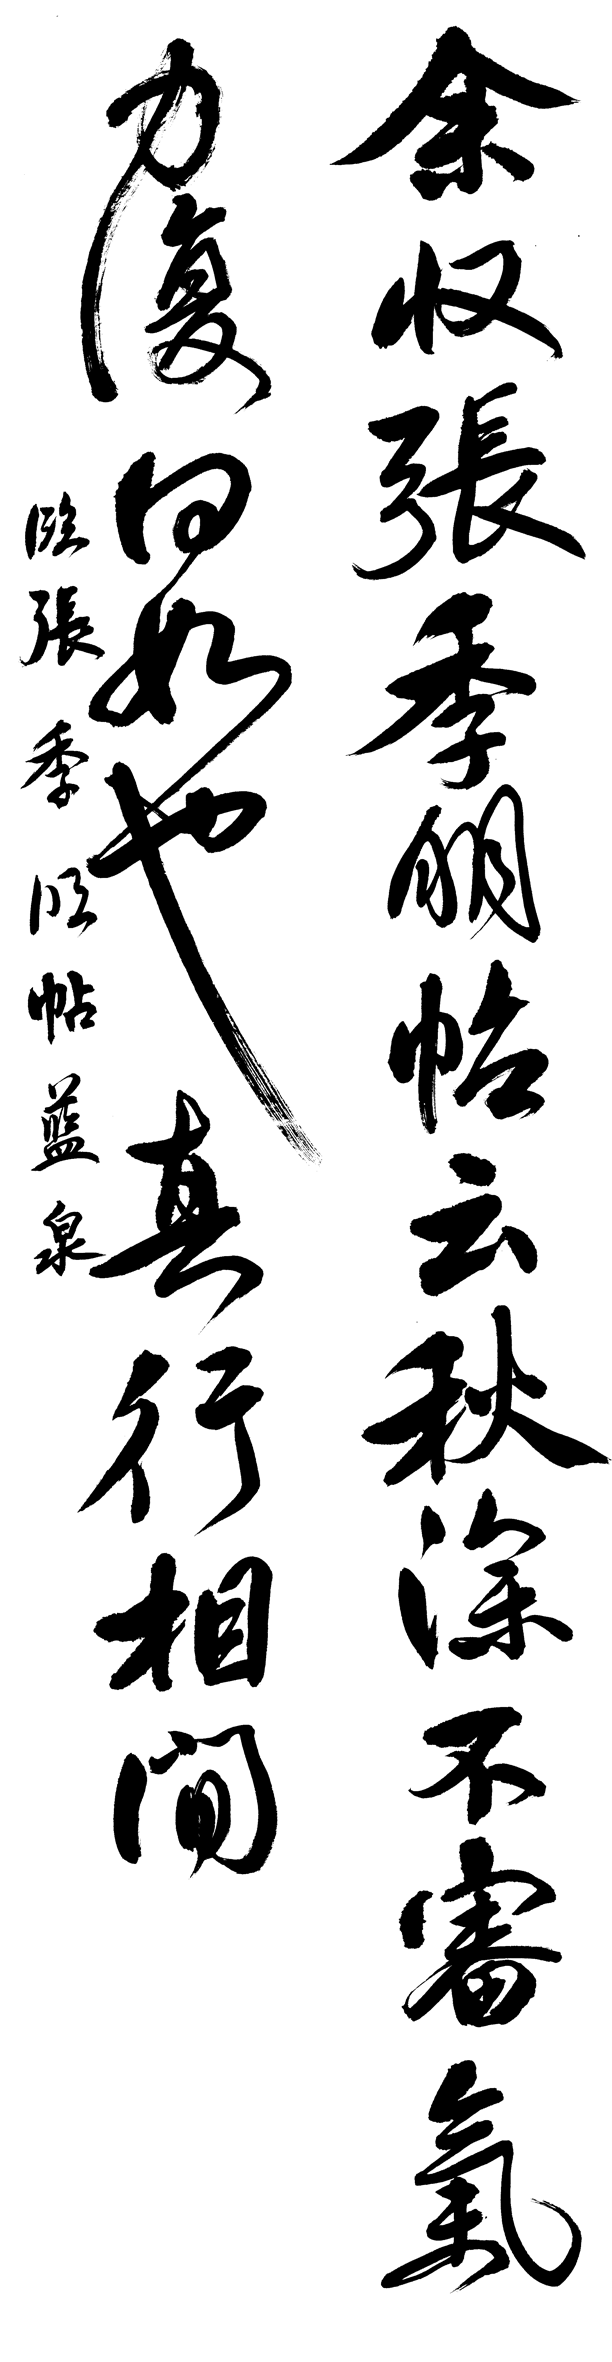 余收張季明帖云秋深不審氣
力復何如也真行相間
臨張季明帖藍泉